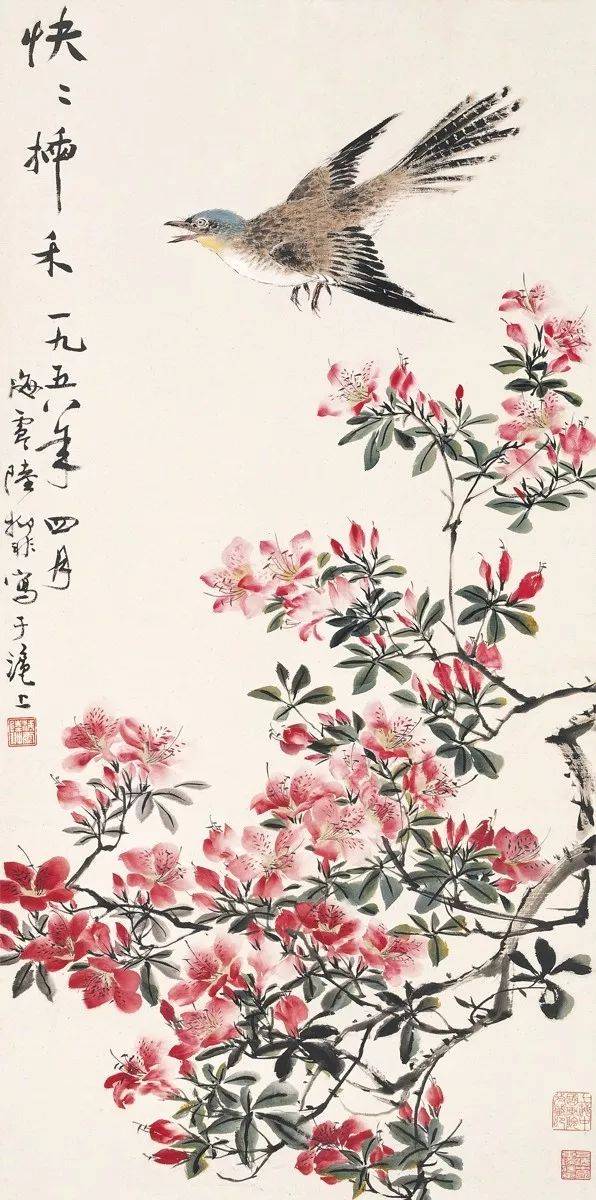 快〻插禾 一九五八年 四月
海虞陸抑非寫于滬上